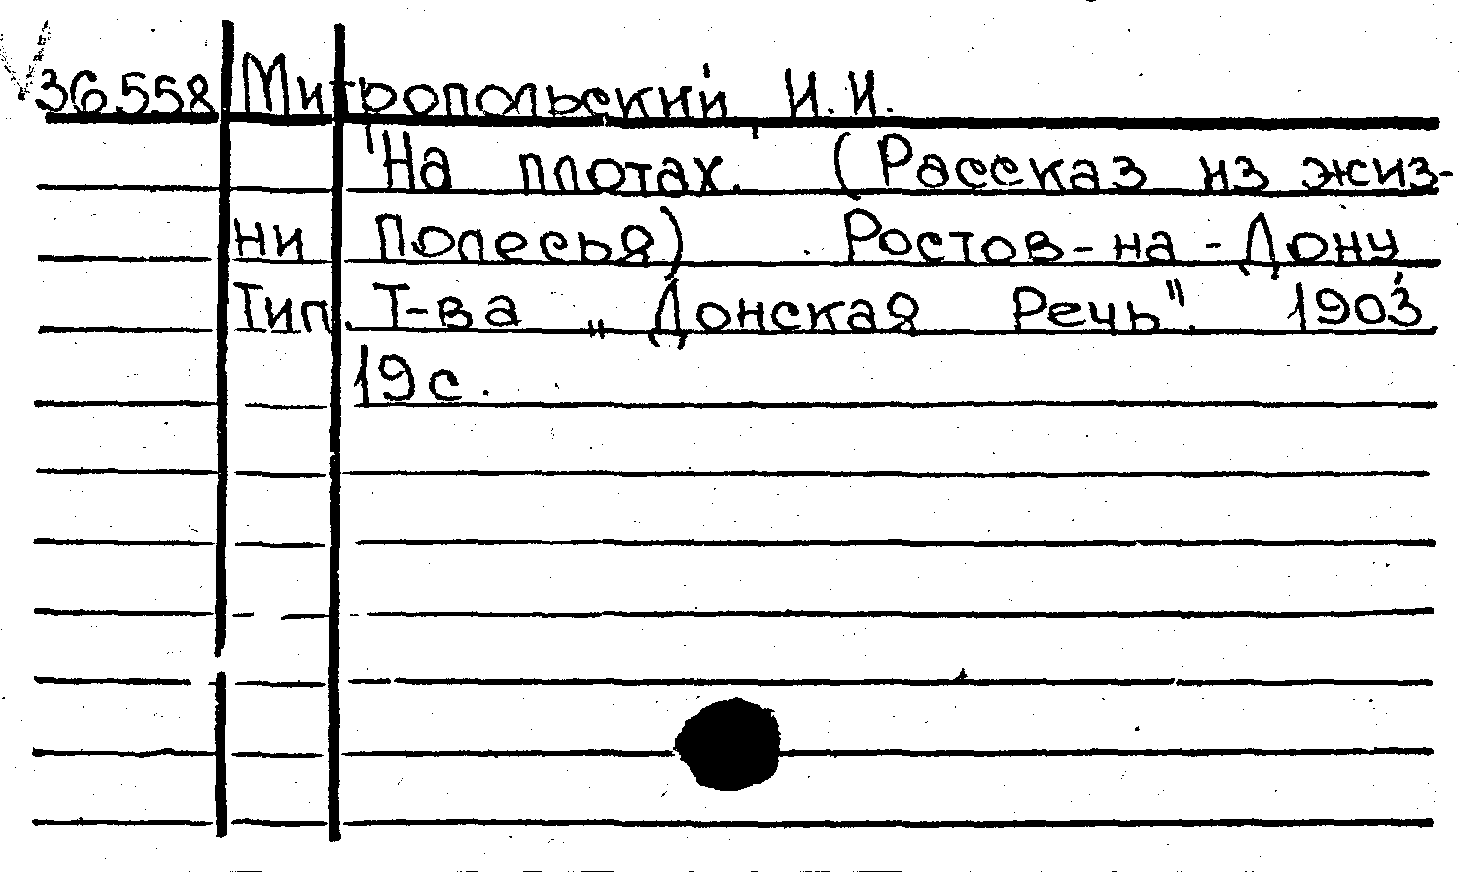 36558 Митропольский И.И.
"На плотах." (Рассказ из жиз-
ни Полесья) Ростов-на-Дону
Тип. Т-ва „Донская Речь". 1903
19 с.